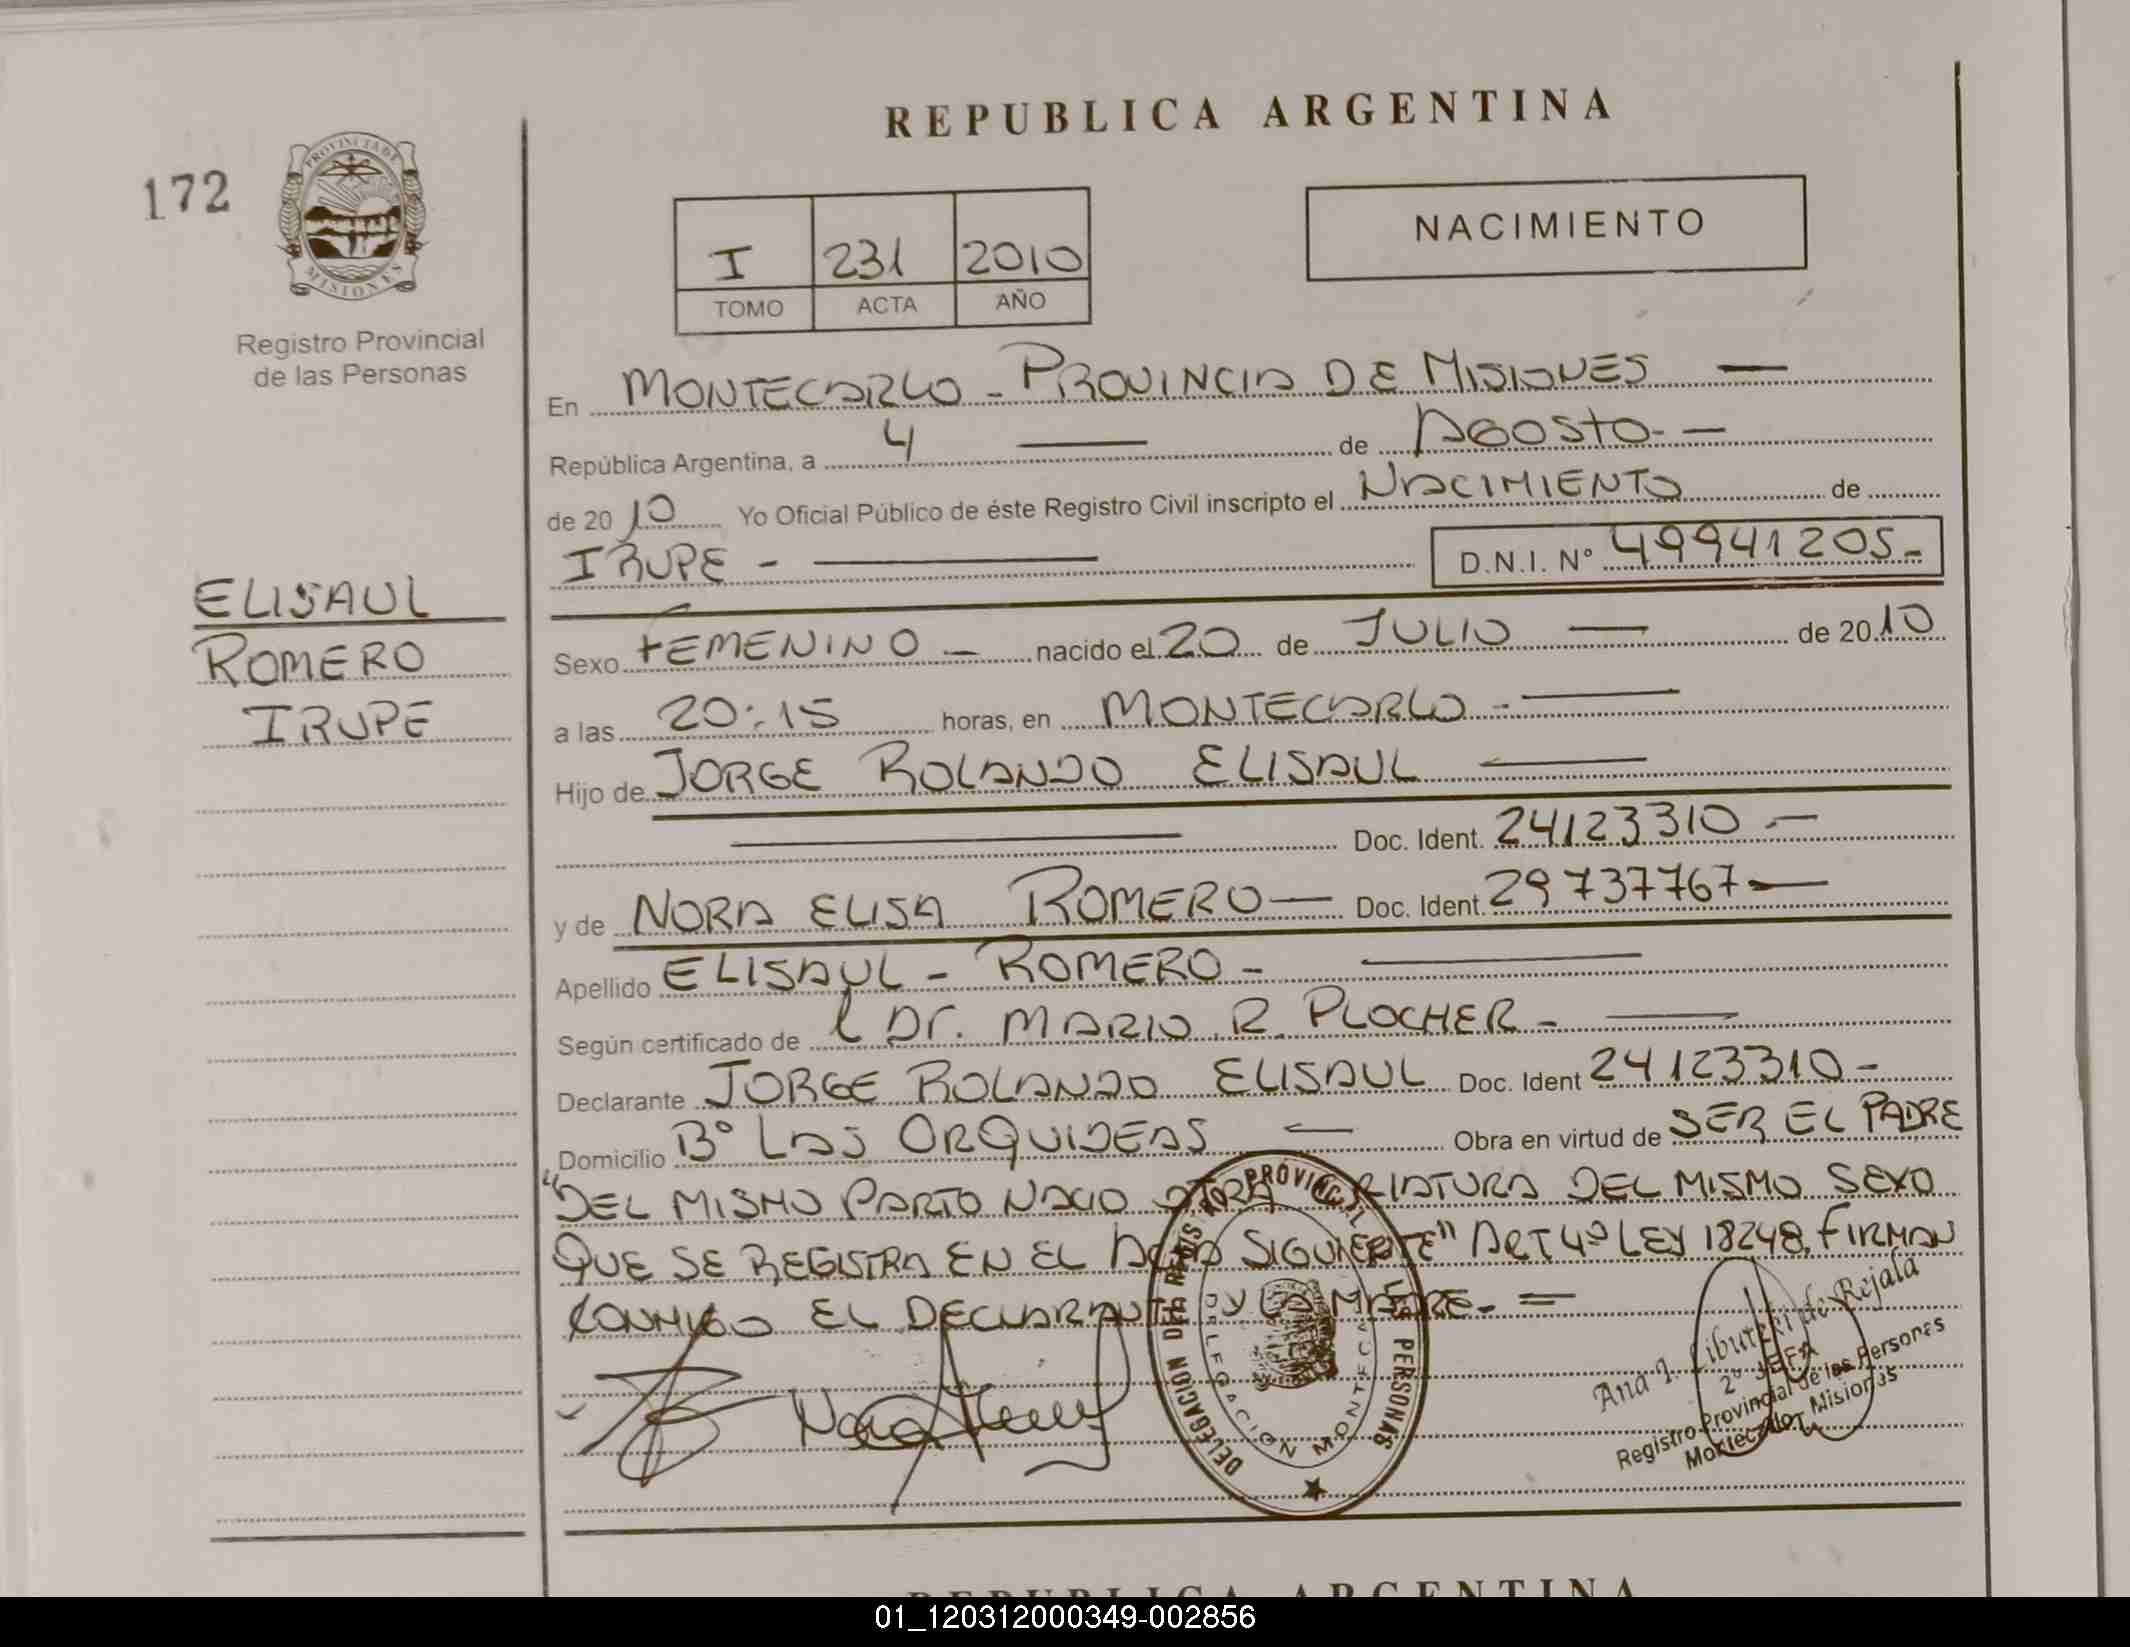 REPUBLICA ARGENTINA
172
PROVINCIA DE
MISIONES
Registro Provincial
de las Personas
I 231 2010
TOMO ACTA AÑO
NACIMIENTO
En MONTECARLO - PROVINCIA DE MISIONES —
República Argentina, a 4 — de AGOSTO - —
de 2010 Yo Oficial Público de éste Registro Civil inscripto el NACIMIENTO de
IRUPE - — D.N.I. N° 49941205 -
ELISAUL
ROMERO
IRUPE
Sexo FEMENINO — nacido el 20 de JULIO — de 2010
a las 20:15 horas, en MONTECARLO - —
Hijo de JORGE ROLANDO ELISAUL —
— Doc. Ident. 24123310 . —
y de NORA ELISA ROMERO — Doc. Ident. 29737767 —
Apellido ELISAUL - ROMERO - —
Según certificado de l Dr. MARIO R. PLOCHER - —
Declarante JORGE ROLANDO ELISAUL Doc. Ident 24123310 -
Domicilio B° LAS ORQUIDEAS — Obra en virtud de SER EL PADRE
"DEL MISMO PARTO NACIO OTRA CRIATURA DEL MISMO SEXO
QUE SE REGISTRA EN EL ACTA SIGUIENTE" ART 4° LEY 18248. FIRMAN
CONMIGO EL DECLARANTE Y LA MADRE. - =
DELEGACION DEL REGISTRO PROVINCIAL DE LAS PERSONAS
DELEGACION MONTECARLO
Nora
Ana I. de Rejala
2° JEFA
Registro Provincial de las Personas
Montecarlo, Misiones
REPUBLICA ARGENTINA
01_120312000349-002856